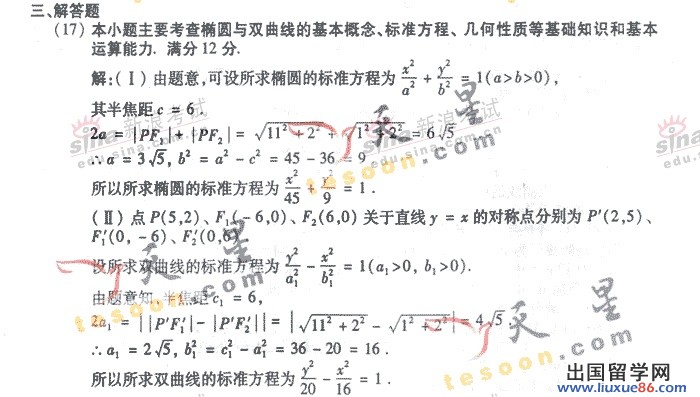 三、解答题
(17) 本小题主要考查椭圆与双曲线的基本概念、标准方程、几何性质等基础知识和基本
运算能力. 满分 12 分.
解:(Ⅰ) 由题意,可设所求椭圆的标准方程为 x²/a² + y²/b² = 1(a>b>0),
其半焦距 c = 6.
2a = |PF₁| + |PF₂| = √(11² + 2²) + √(1² + 2²) = 6√5
∴ a = 3√5, b² = a² - c² = 45 - 36 = 9
所以所求椭圆的标准方程为 x²/45 + y²/9 = 1.
(Ⅱ) 点 P(5,2)、F₁(-6,0)、F₂(6,0) 关于直线 y = x 的对称点分别为 P′(2,5)、
F₁′(0, -6)、F₂′(0,6)
设所求双曲线的标准方程为 y²/a₁² - x²/b₁² = 1(a₁>0, b₁>0).
由题意知,半焦距 c₁ = 6,
2a₁ = ||P′F₁′| - |P′F₂′|| = |√(11² + 2²) - √(1² + 2²)| = 4√5.
∴ a₁ = 2√5, b₁² = c₁² - a₁² = 36 - 20 = 16.
所以所求双曲线的标准方程为 y²/20 - x²/16 = 1.
新浪考试
sina.com.cn
新浪考试
天星
tesoon.com
天星
tesoon.com
天星
tesoon.com
出国留学网
www.liuxue86.com